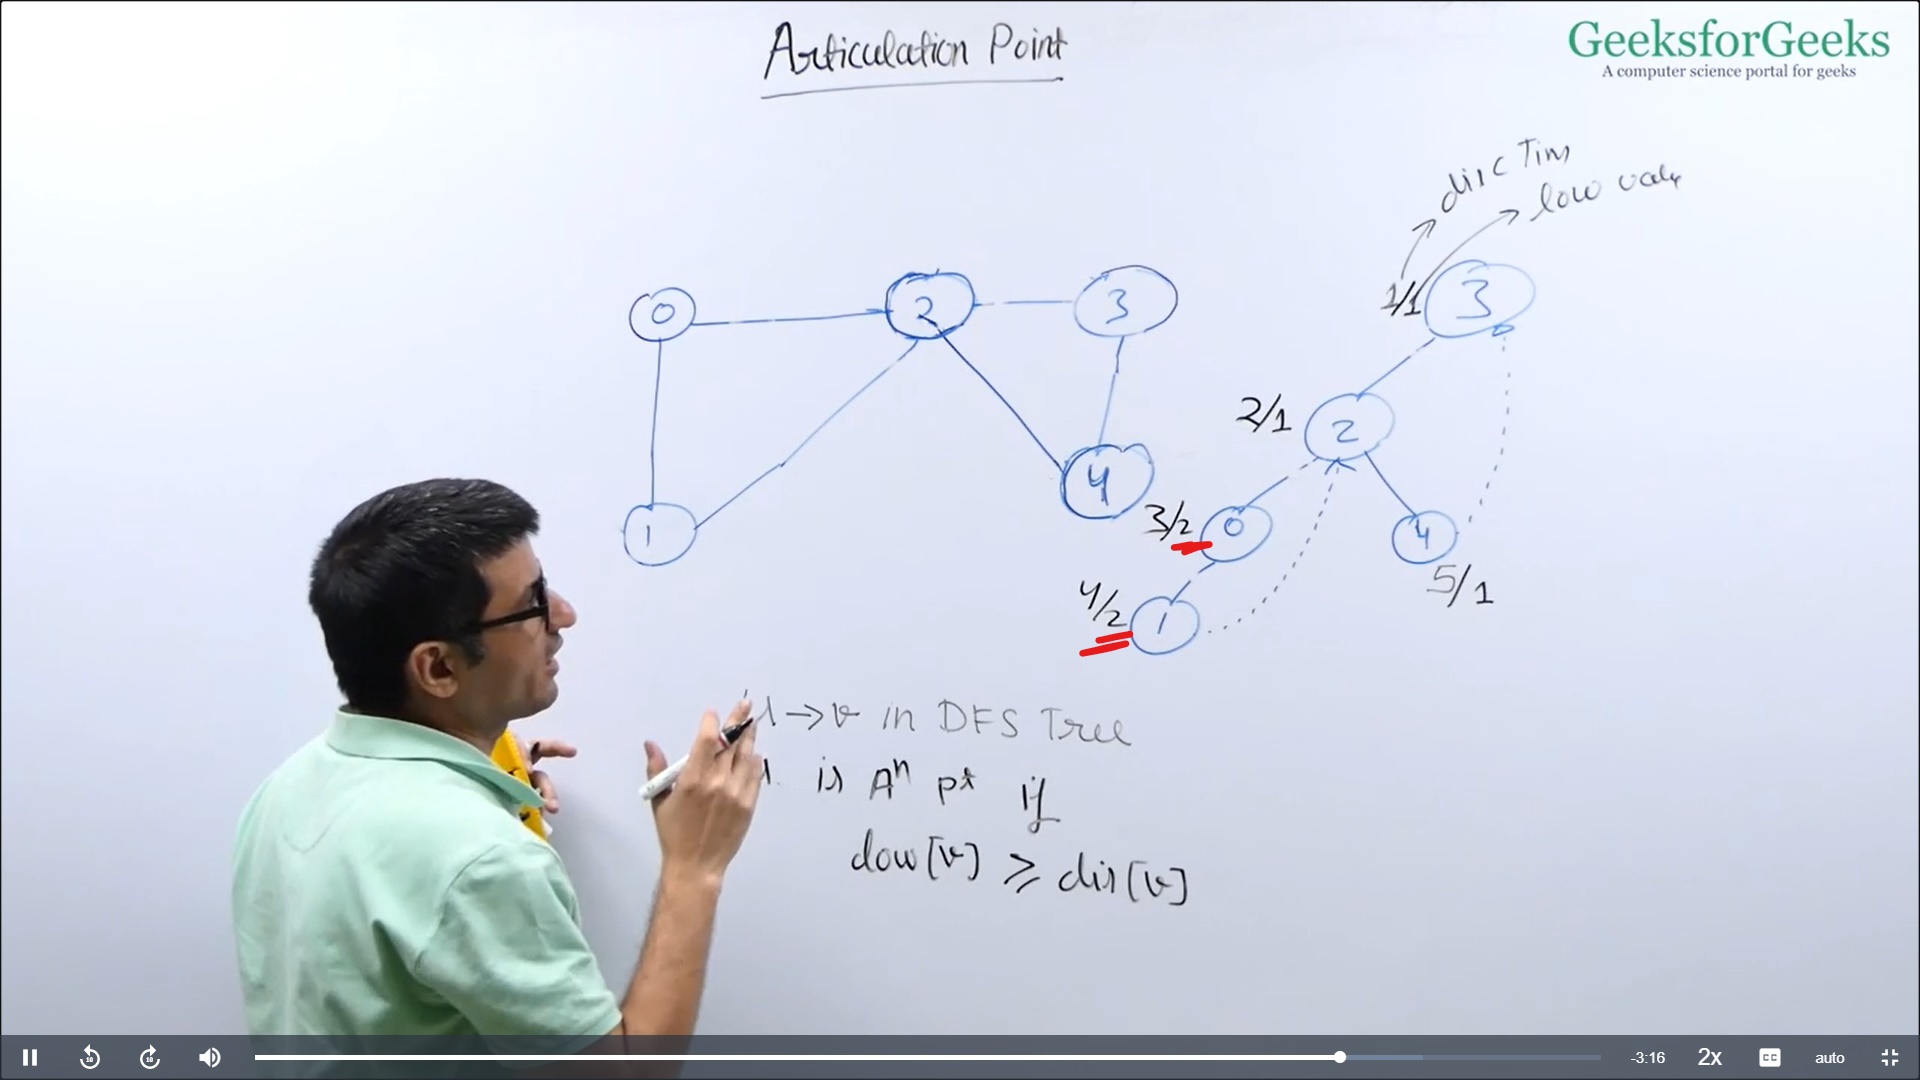 Articulation Point
GeeksforGeeks
A computer science portal for geeks
disc Tim
low
0
2
3
1
4
1/1
3
2/1
2
3/2
0
4
5/1
4/2
1
→ v in DFS Tree
is An pt if
low[v] ≥ dis[v]
10
10
-3:16
2x
CC
auto